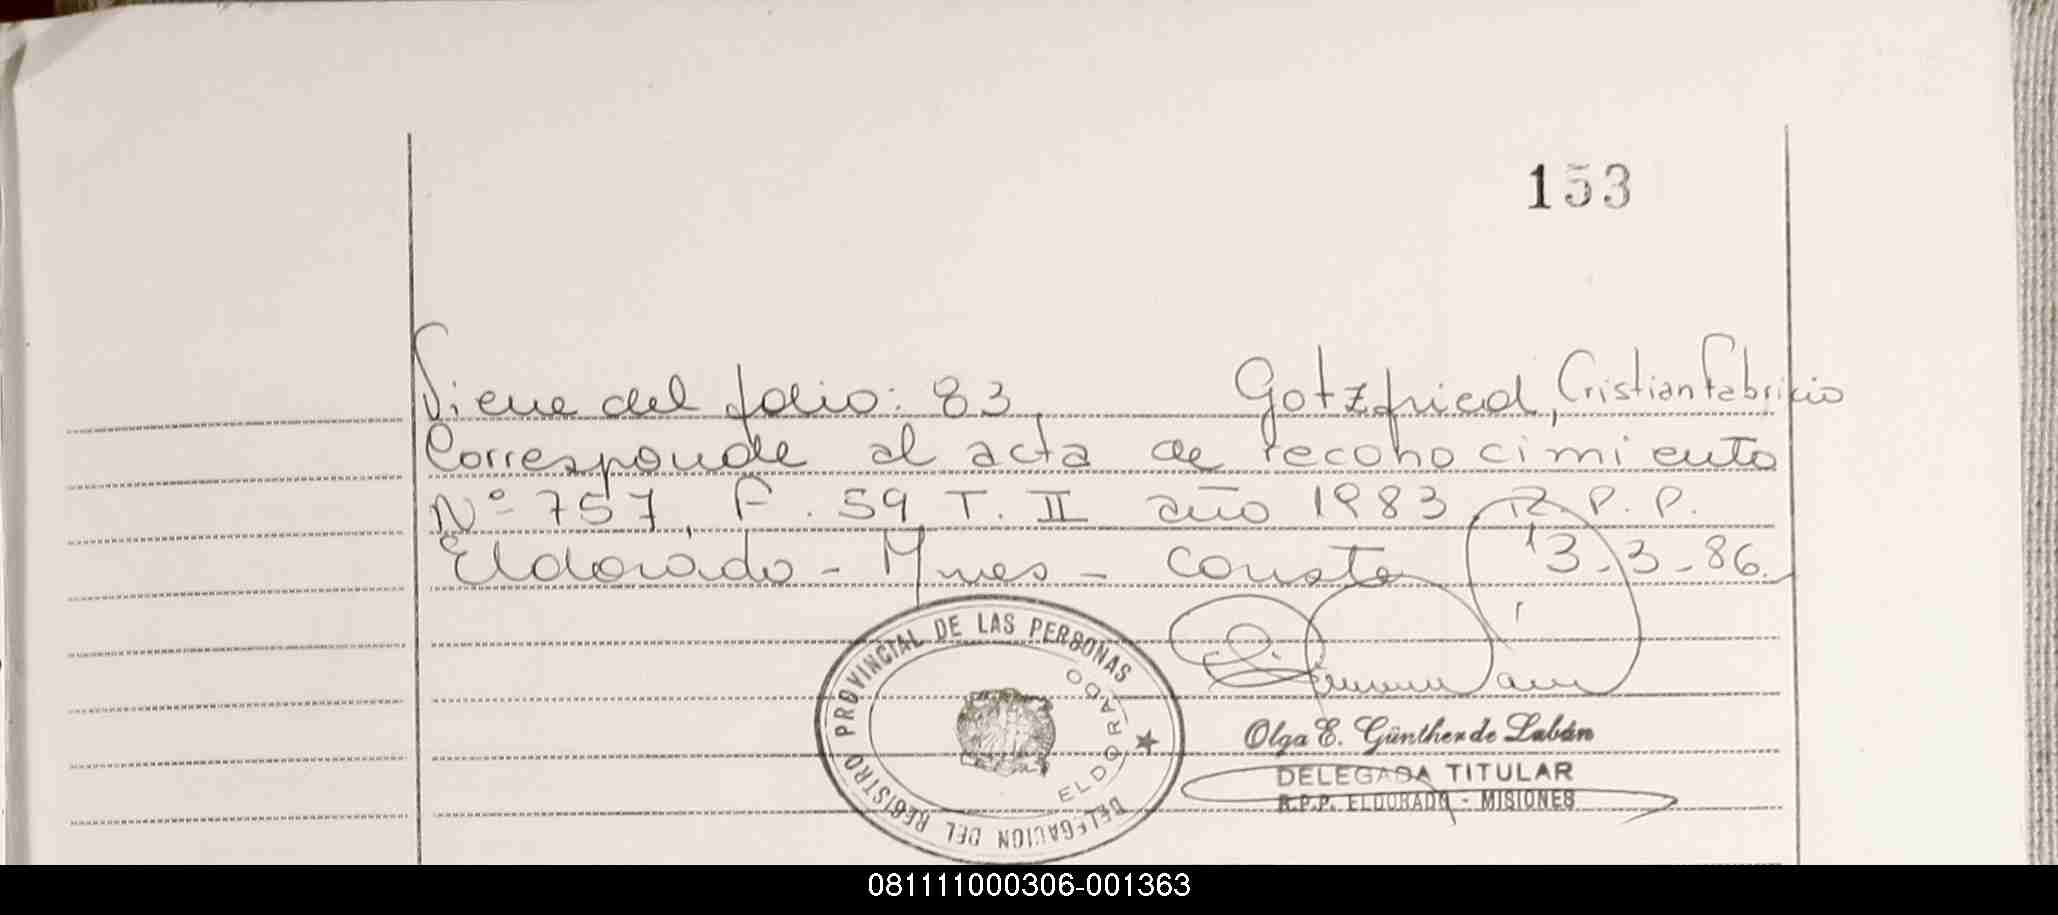 153
Viene del folio: 83, Gotzfried, Cristian Fabricio
Corresponde al acta de reconocimiento
Nº 757, F. 59 T. II año 1983 R. P. P.
Eldorado - Mnes - Conste 13-3-86.
DELEGACION DEL REGISTRO PROVINCIAL DE LAS PERSONAS
ELDORADO
Olga E. Günther de Labán
DELEGADA TITULAR
R.P.P. ELDORADO - MISIONES
081111000306-001363